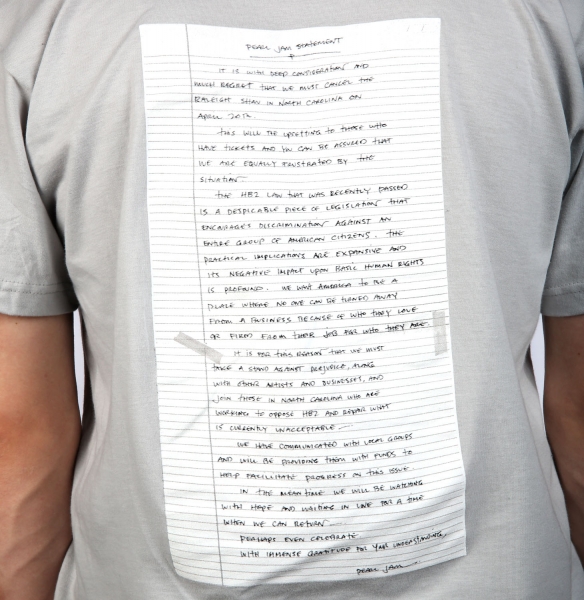 PEARL JAM STATEMENT
IT IS WITH DEEP CONSIDERATION AND
MUCH REGRET THAT WE MUST CANCEL THE
RALEIGH SHOW IN NORTH CAROLINA ON
APRIL 20TH.
THIS WILL BE UPSETTING TO THOSE WHO
HAVE TICKETS AND YOU CAN BE ASSURED THAT
WE ARE EQUALLY FRUSTRATED BY THE
SITUATION
THE HB2 LAW THAT WAS RECENTLY PASSED
IS A DESPICABLE PIECE OF LEGISLATION THAT
ENCOURAGES DISCRIMINATION AGAINST AN
ENTIRE GROUP OF AMERICAN CITIZENS. THE
PRACTICAL IMPLICATIONS ARE EXPANSIVE AND
ITS NEGATIVE IMPACT UPON BASIC HUMAN RIGHTS
IS PROFOUND. WE WANT AMERICA TO BE A
PLACE WHERE NO ONE CAN BE TURNED AWAY
FROM A BUSINESS BECAUSE OF WHO THEY LOVE
OR FIRED FROM THEIR JOB FOR WHO THEY ARE
IT IS FOR THIS REASON THAT WE MUST
TAKE A STAND AGAINST PREJUDICE, ALONG
WITH OTHER ARTISTS AND BUSINESSES, AND
JOIN THOSE IN NORTH CAROLINA WHO ARE
WORKING TO OPPOSE HB2 AND REPAIR WHAT
IS CURRENTLY UNACCEPTABLE
WE HAVE COMMUNICATED WITH LOCAL GROUPS
AND WILL BE PROVIDING THEM WITH FUNDS TO
HELP FACILITATE PROGRESS ON THIS ISSUE
IN THE MEANTIME WE WILL BE WATCHING
WITH HOPE AND WAITING IN LINE FOR A TIME
WHEN WE CAN RETURN
PERHAPS EVEN CELEBRATE
WITH IMMENSE GRATITUDE FOR YOUR UNDERSTANDING,
PEARL JAM